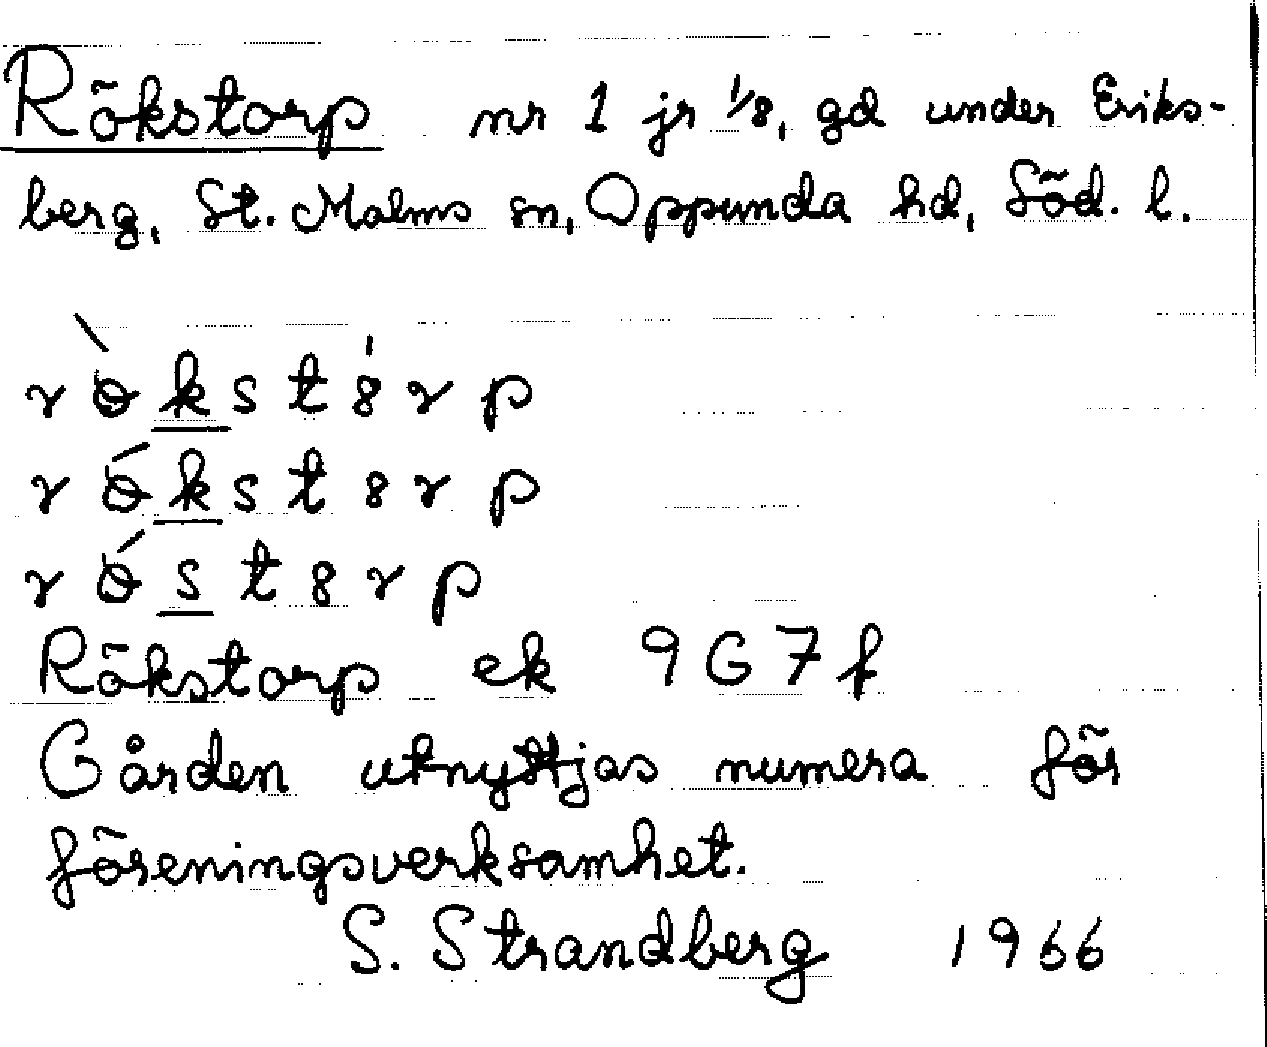 Rökstorp nr 1 jr 1/8, gd under Eriks-
berg, St. Malms sn, Oppunda hd, Söd. l.
Rökstorp ek 9G7f
Gården utnyttjas numera för
föreningsverksamhet.
S. Strandberg 1966